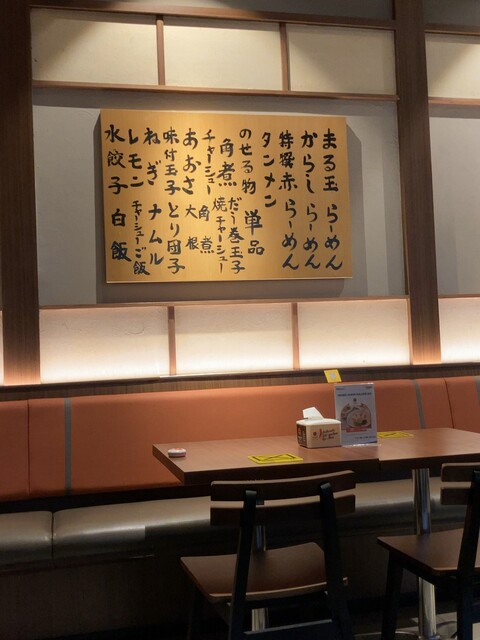 まる玉らーめん
からしらーめん
特撰赤らーめん
タンメン
のせる物
角煮
チャーシュー
あおさ
味付玉子
ねぎ
レモン
水餃子
単品
だう巻玉子
焼チャーシュー
角煮
大根
とり団子
ナムル
チャーシューご飯
白飯